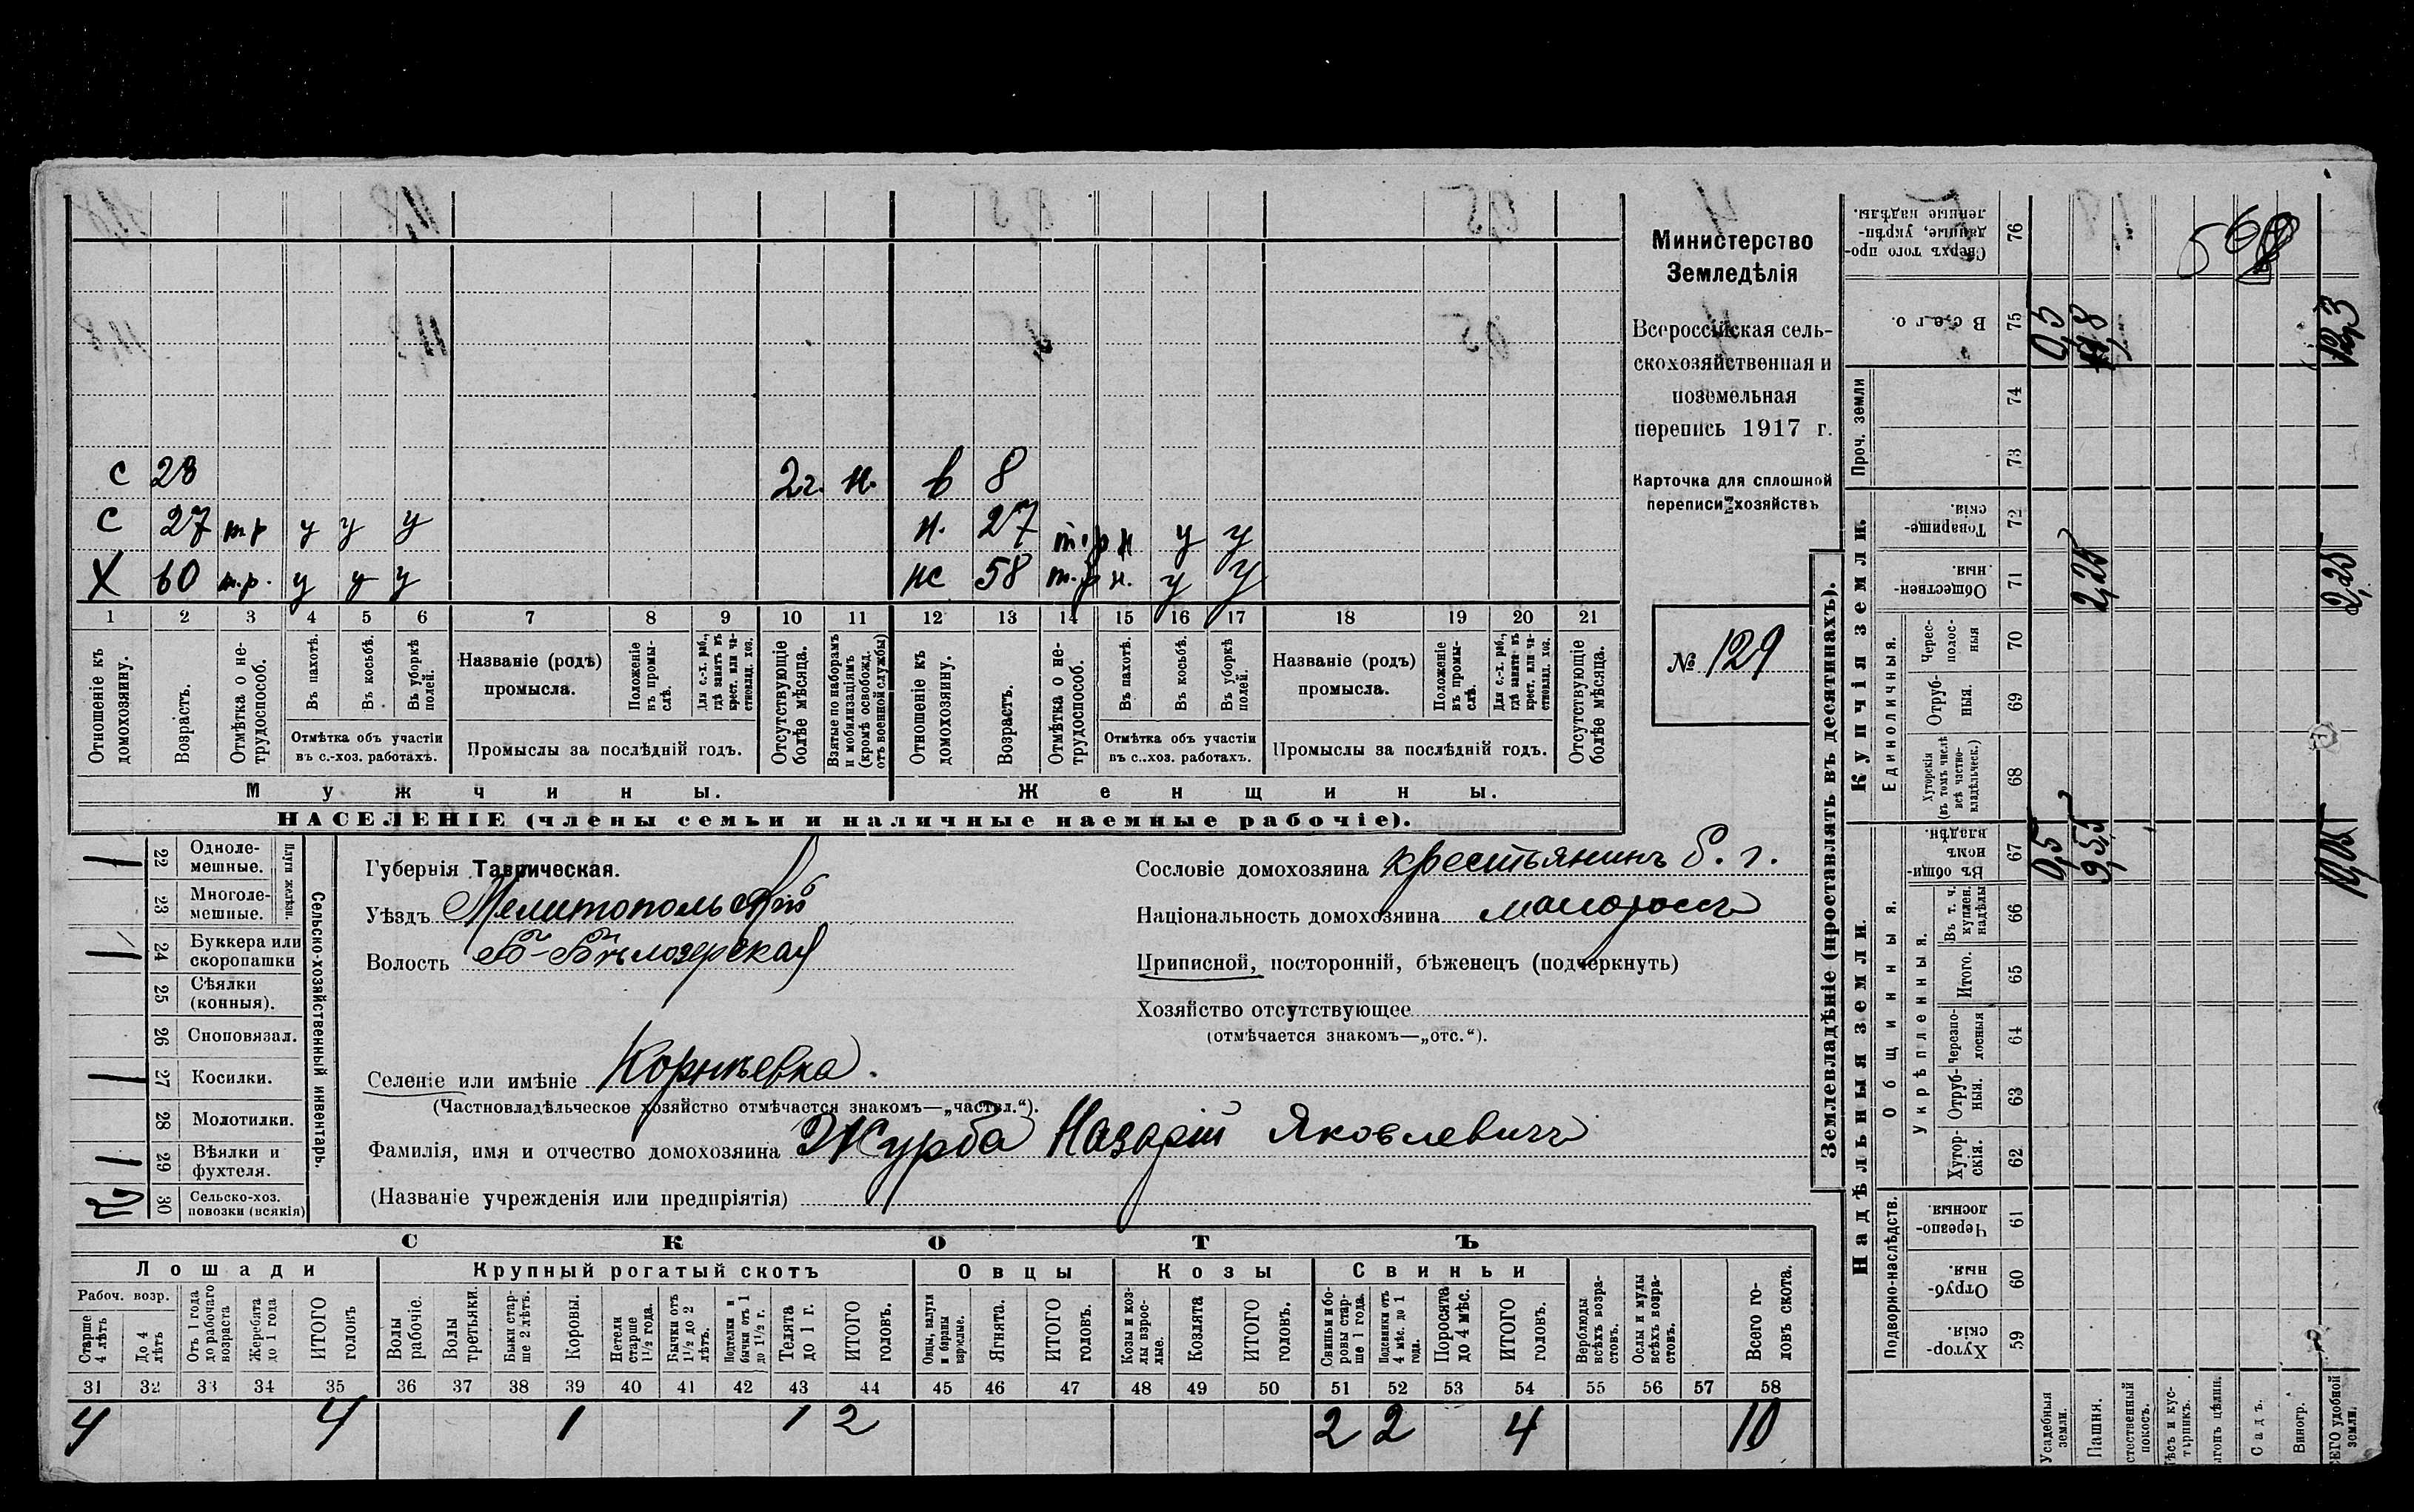 с 28 2г. н. в 8
с 27 тр у у у н. 27 т.р н у у
Х 60 т.р. у у у нс 58 т.р н. у у
1 2 3 4 5 6 7 8 9 10 11 12 13 14 15 16 17 18 19 20 21
Отношеніе къ домохозяину.
Возрастъ.
Отмѣтка о нетрудоспособ.
Въ пахотѣ.
Въ косьбѣ.
Въ уборкѣ полей.
Отмѣтка объ участіи
въ с.-хоз. работахъ.
Названіе (родъ)
промысла.
Положеніе въ промыслѣ.
Для с.-х. раб., гдѣ занятъ въ крест. или частновлад. хоз.
Промыслы за послѣдній годъ.
Отсутствующіе болѣе мѣсяца.
Взятые по наборамъ и мобилизаціямъ (кромѣ освобожд. отъ военной службы)
Отношеніе къ домохозяину.
Возрастъ.
Отмѣтка о нетрудоспособ.
Въ пахотѣ.
Въ косьбѣ.
Въ уборкѣ полей.
Отмѣтка объ участіи
въ с.-хоз. работахъ.
Названіе (родъ)
промысла.
Положеніе въ промыслѣ.
Для с.-х. раб., гдѣ занята въ крест. или частновлад. хоз.
Промыслы за послѣдній годъ.
Отсутствующіе болѣе мѣсяца.
Мужчины. Женщины.
НАСЕЛЕНІЕ (члены семьи и наличные наемные рабочіе).
Министерство
Земледѣлія
Всероссійская сель-
скохозяйственная и
поземельная
перепись 1917 г.
Карточка для сплошной
переписи хозяйствъ
№ 129
1 22 Одноле-
мешные.
23 Многоле-
мешные.
Плуги желѣзн.
1 24 Буккера или
скоропашки
25 Сѣялки
(конныя).
26 Сноповязал.
1 27 Косилки.
28 Молотилки.
1 29 Вѣялки и
фухтеля.
2 30 Сельско-хоз.
повозки (всякія)
Сельско-хозяйственный инвентарь.
Губернія Таврическая.
Уѣздъ Мелитопольскій
Волость Б-Бѣлозерская
Сословіе домохозяина крестьянинъ б. г.
Національность домохозяина малороссъ
Приписной, посторонній, бѣженецъ (подчеркнуть)
Хозяйство отсутствующее
(отмѣчается знакомъ—„отс.“).
Селеніе или имѣніе Корнѣевка.
(Частновладѣльческое хозяйство отмѣчается знакомъ—„частвл.“).
Фамилія, имя и отчество домохозяина Журба Назарій Яковлевичъ
(Названіе учрежденія или предпріятія)
СКОТЪ
Лошади Крупный рогатый скотъ Овцы Козы Свиньи
Рабоч. возр.
Старше 4 лѣтъ
До 4 лѣтъ
Отъ 1 года до рабочаго возраста
Жеребята до 1 года
ИТОГО головъ
Волы рабочіе.
Волы третьяки.
Быки старше 2 лѣтъ.
Коровы.
Нетели старше 1½ года.
Бычки отъ 1½ до 2 лѣтъ.
Подтелки и бычки отъ 1 до 1½ г.
Телята до 1 г.
ИТОГО головъ.
Овцы, валухи и бараны взрослые.
Ягнята.
ИТОГО головъ.
Козы и козлы взрослые.
Козлята
ИТОГО головъ.
Свиньи и боровы старше 1 года.
Подсвинки отъ 4 мѣс. до 1 года.
Поросята до 4 мѣс.
ИТОГО головъ.
Верблюды всѣхъ возрастовъ.
Ослы и мулы всѣхъ возрастовъ.
Всего головъ скота.
31 32 33 34 35 36 37 38 39 40 41 42 43 44 45 46 47 48 49 50 51 52 53 54 55 56 57 58
4 4 1 1 2 2 2 4 10
Землевладѣніе (проставлять въ десятинахъ).
Надѣльныя земли. Купчія земли. Проч. земли
Подворно-наслѣдств.
Общинныя.
Укрѣпленныя.
Единоличныя.
Сверхъ того проданные, укрѣпленные надѣлы. 76
Всего. 75 0,5 11,8 12,3
74
73
Товарищескія. 72
Общественныя. 71 2,25 2,25
Чересполосныя 70
Отрубныя. 69
Хуторскія (въ томъ числѣ всѣ частновладѣльческ.) 68
Въ общинномъ владѣн. 67 0,5 9,55 10,05
Въ т. ч. куплен. надѣлы 66
Итого. 65
Черезполосныя 64
Отрубныя. 63
Хуторскія. 62
Черезполосныя. 61
Отрубныя. 60
Хуторскія. 59
Усадебныя земли.
Пашня.
Садъ.
Виногр.